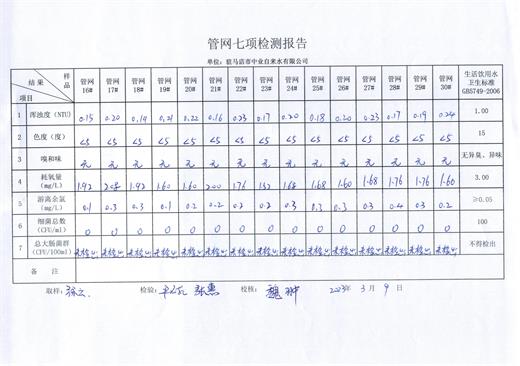 管网七项检测报告
单位：驻马店市中业自来水有限公司
结果 样品 项目 管网16# 管网17# 管网18# 管网19# 管网20# 管网21# 管网22# 管网23# 管网24# 管网25# 管网26# 管网27# 管网28# 管网29# 管网30# 生活饮用水卫生标准GB5749-2006
1 浑浊度（NTU） 0.15 0.20 0.19 0.21 0.22 0.16 0.23 0.17 0.20 0.18 0.20 0.23 0.17 0.19 0.24 1.00
2 色度（度） <5 <5 <5 <5 <5 <5 <5 <5 <5 <5 <5 <5 <5 <5 <5 15
3 嗅和味 无 无 无 无 无 无 无 无 无 无 无 无 无 无 无 无异臭、异味
4 耗氧量（mg/L） 1.92 2.08 1.92 1.60 1.60 2.00 1.76 1.52 1.68 1.68 1.60 1.68 1.76 1.76 1.60 3.00
5 游离余氯（mg/L） 0.1 0.3 0.3 0.1 0.2 0.2 0.2 0.2 0.3 0.3 0.3 0.3 0.4 0.3 0.2 ≥0.05
6 细菌总数（CFU/ml） 0 0 0 0 0 0 0 0 0 0 0 0 0 0 0 100
7 总大肠菌群（CFU/100ml） 未检出 未检出 未检出 未检出 未检出 未检出 未检出 未检出 未检出 未检出 未检出 未检出 未检出 未检出 未检出 不得检出
备注
取样： 检验： 张惠 校核：魏翀 2023年3月9日